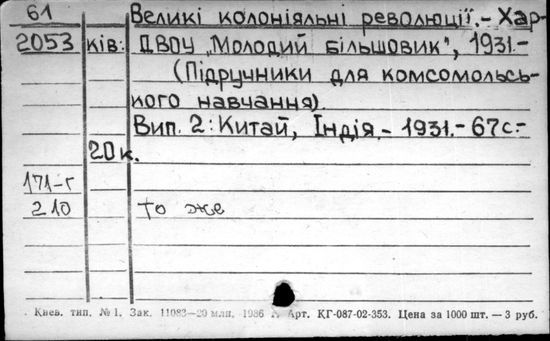 61 Великі колоніяльні революції.- Хар-
2053 ків: ДВОУ „Молодий більшовик", 1931.-
(Підручники для комсомольсь-
кого навчання).
Вип. 2: Китай, Індія.- 1931.- 67с.-
20к.
171-г
210 то же
Киев. тип. № 1. Зак. 11083—20 млн. 1986 г. Арт. КГ-087-02-353. Цена за 1000 шт. — 3 руб.